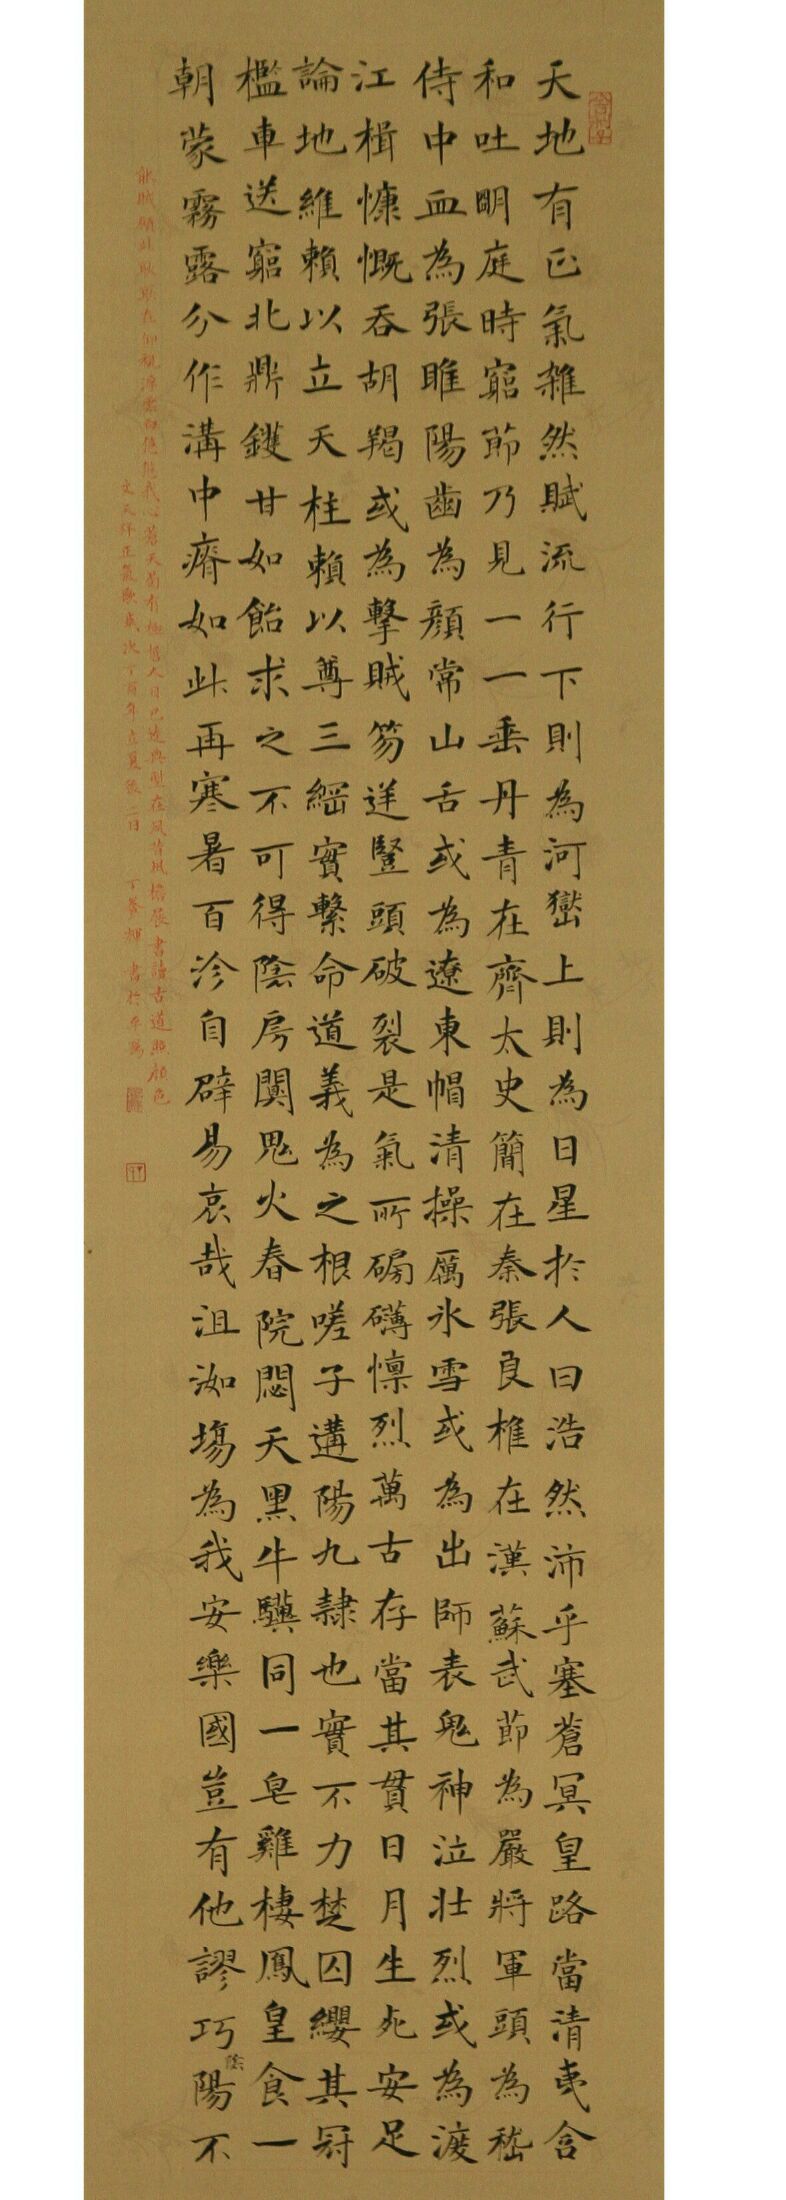 天地有正氣雜然賦流行下則為河嶽上則為日星於人曰浩然沛乎塞蒼冥皇路當清夷含
和吐明庭時窮節乃見一一垂丹青在齊太史簡在秦張良椎在漢蘇武節為嚴將軍頭為嵇
侍中血為張睢陽齒為顏常山舌或為遼東帽清操厲冰雪或為出師表鬼神泣壯烈或為渡
江楫慷慨吞胡羯或為擊賊笏逆豎頭破裂是氣所磅礴懍烈萬古存當其貫日月生死安足
論地維賴以立天柱賴以尊三綱實繫命道義為之根嗟予遘陽九隸也實不力楚囚纓其冠
檻車送窮北鼎鑊甘如飴求之不可得陰房闃鬼火春院閟天黑牛驥同一皂雞棲鳳皇食一
朝蒙霧露分作溝中瘠如此再寒暑百沴自辟易哀哉沮洳場為我安樂國豈有他謬巧陰陽不
能賊顧此耿耿在仰視浮雲白悠悠我心蒼天曷有極哲人日已遠典型在夙昔風檐展書讀古道照顏色
文天祥正氣歌歲次丁酉年立夏後二日 丁 輝書於